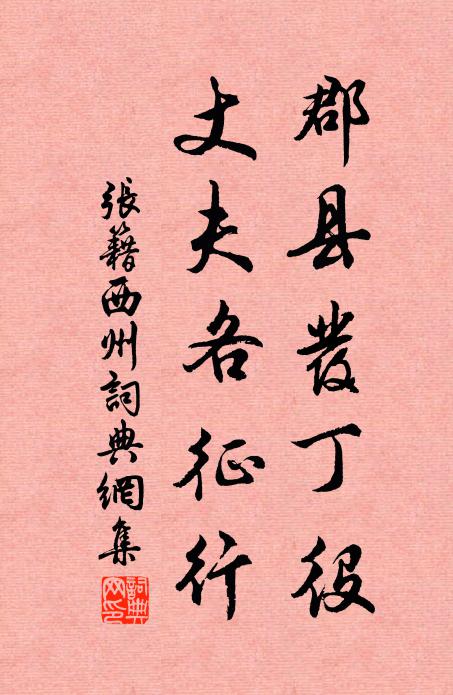 郡县發丁役
丈夫各征行
張籍西州詞典網集
詞典网印